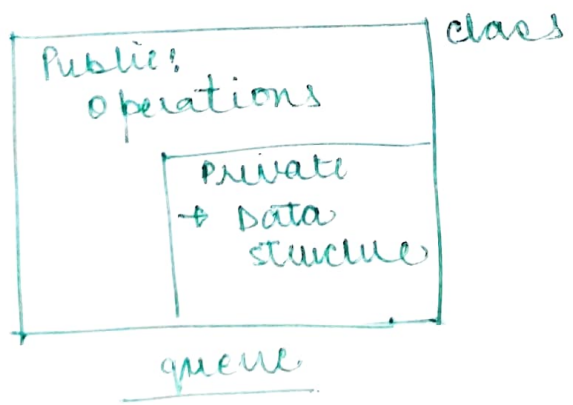 class
Public:
operations
Private
+ Data
structure
queue